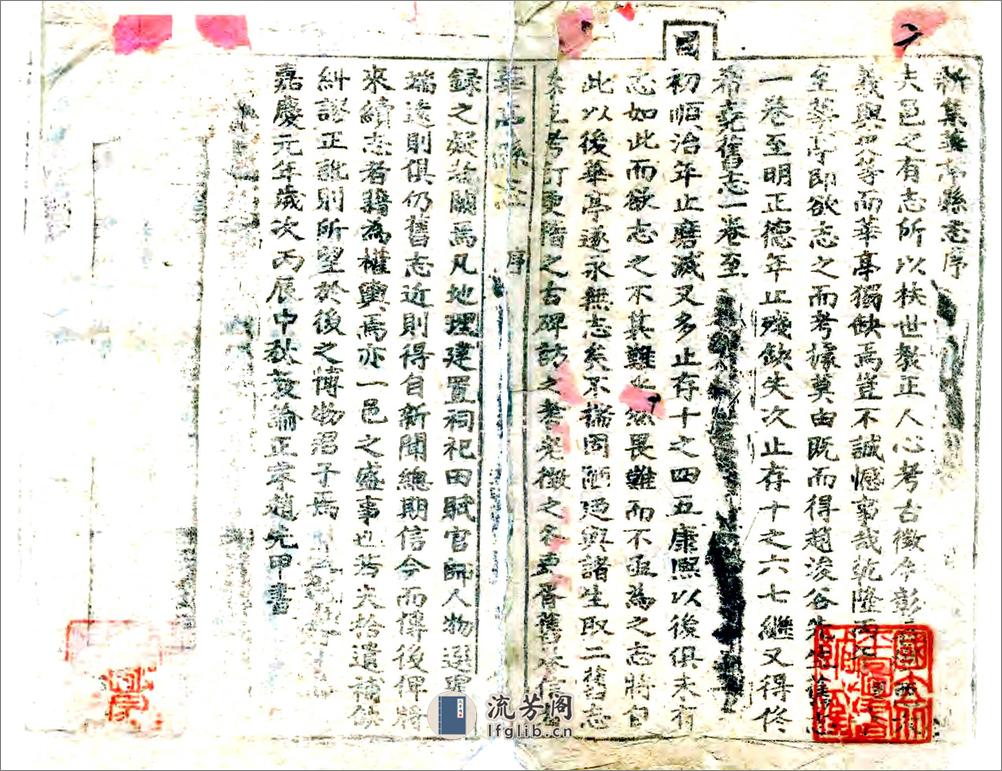 新集華亭縣志序
夫邑之有志所以扶世敎正人心考古徵今彰
義與善等而華亭獨缺焉豈不誠憾事哉乾隆丙
至華亭即欲志之而考據莫由旣而得趙浚谷先生舊志
一卷至明正德年止殘缺失次止存十之六七繼又得佟
希堯舊志一卷至
國
初順治年止磨滅又多止存十之四五康熙以後俱未有
志如此而欲志之不甚難然畏難而不亟為之志將自
此以後華亭遂永無志矣不揣固陋廼與諸生取二舊志
考訂更稽之古碑訪之耆老徵之各
華亭縣志 序
錄之疑者闕焉凡地理建置祠祀田賦官師人物選舉
端遠則俱仍舊志近則得自新聞總期信今而傳後俾將
來續志者籍為權輿焉亦一邑之盛事也若夫拾遺補缺
糾謬正訛則所望於後之博物君子焉
嘉慶元年歲次丙辰中秋敎諭正寧趙先甲書
流芳阁
lfglib.cn